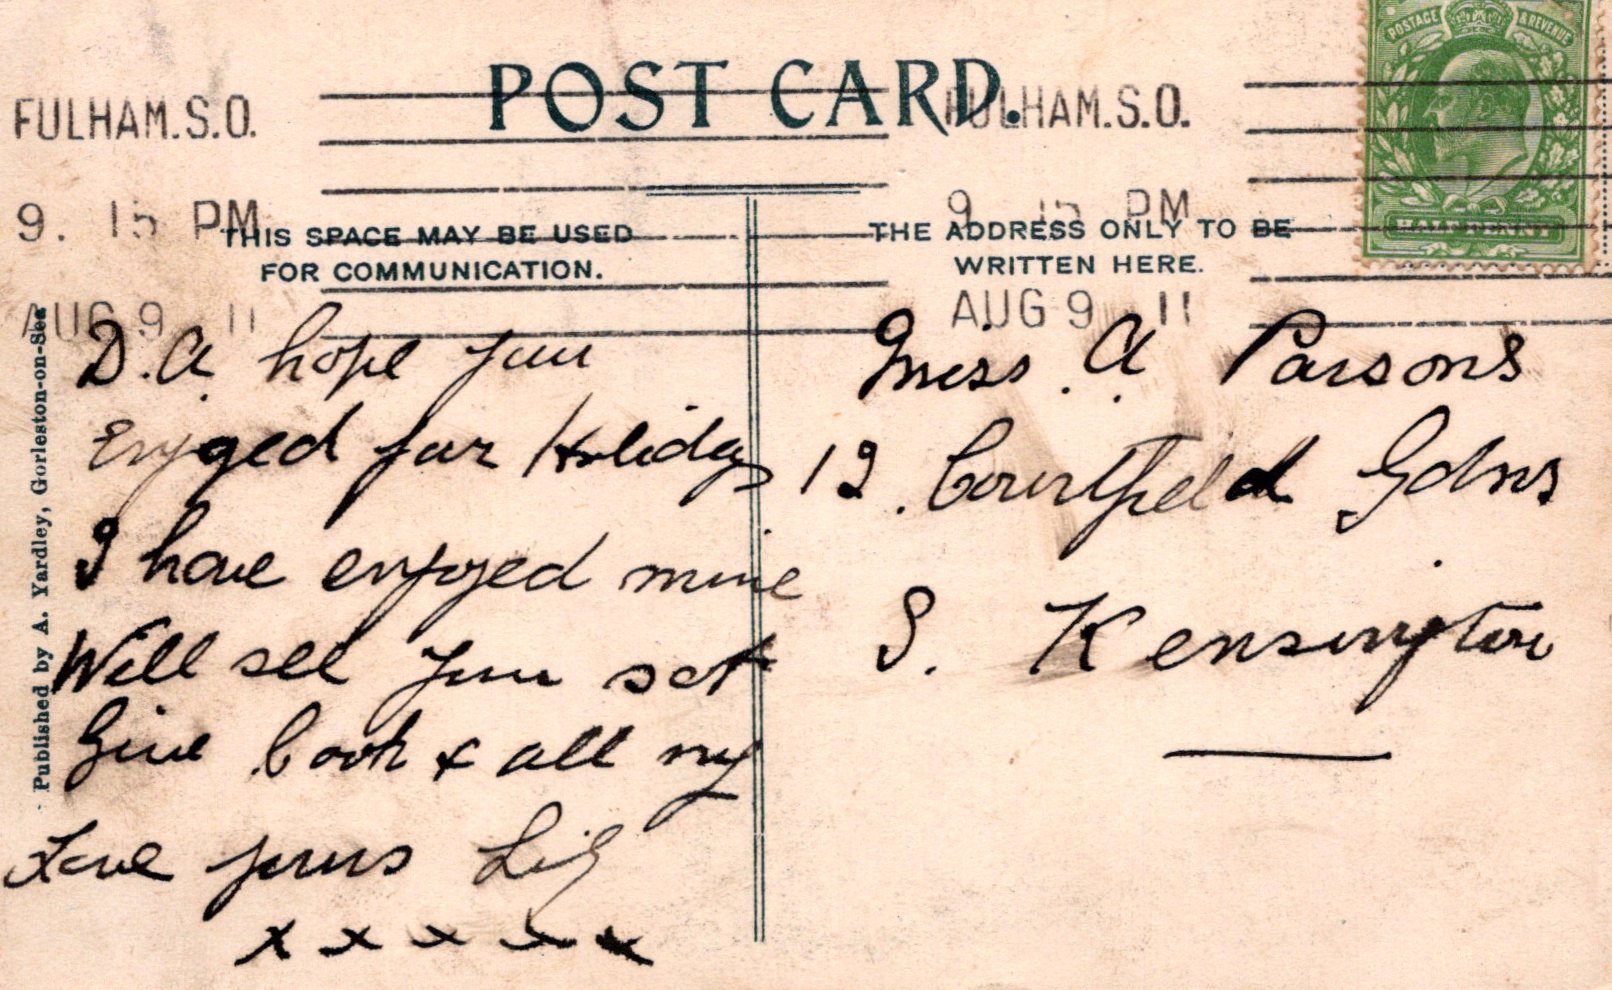 POST CARD.
FULHAM.S.O.
9. 15 PM
AUG 9 11
FULHAM.S.O.
9. 15 PM
AUG 9 11
POSTAGE & REVENUE
HALFPENNY
THIS SPACE MAY BE USED
FOR COMMUNICATION.
THE ADDRESS ONLY TO BE
WRITTEN HERE.
D.A hope you
Enjoyed your Holiday
I have enjoyed mine
Will see you sat
Give Cook & all my
Love yours Liz
x x x x x
Miss A Parsons
12 Courtfield Gdns
S. Kensington
Published by A. Yardley, Gorleston-on-Sea